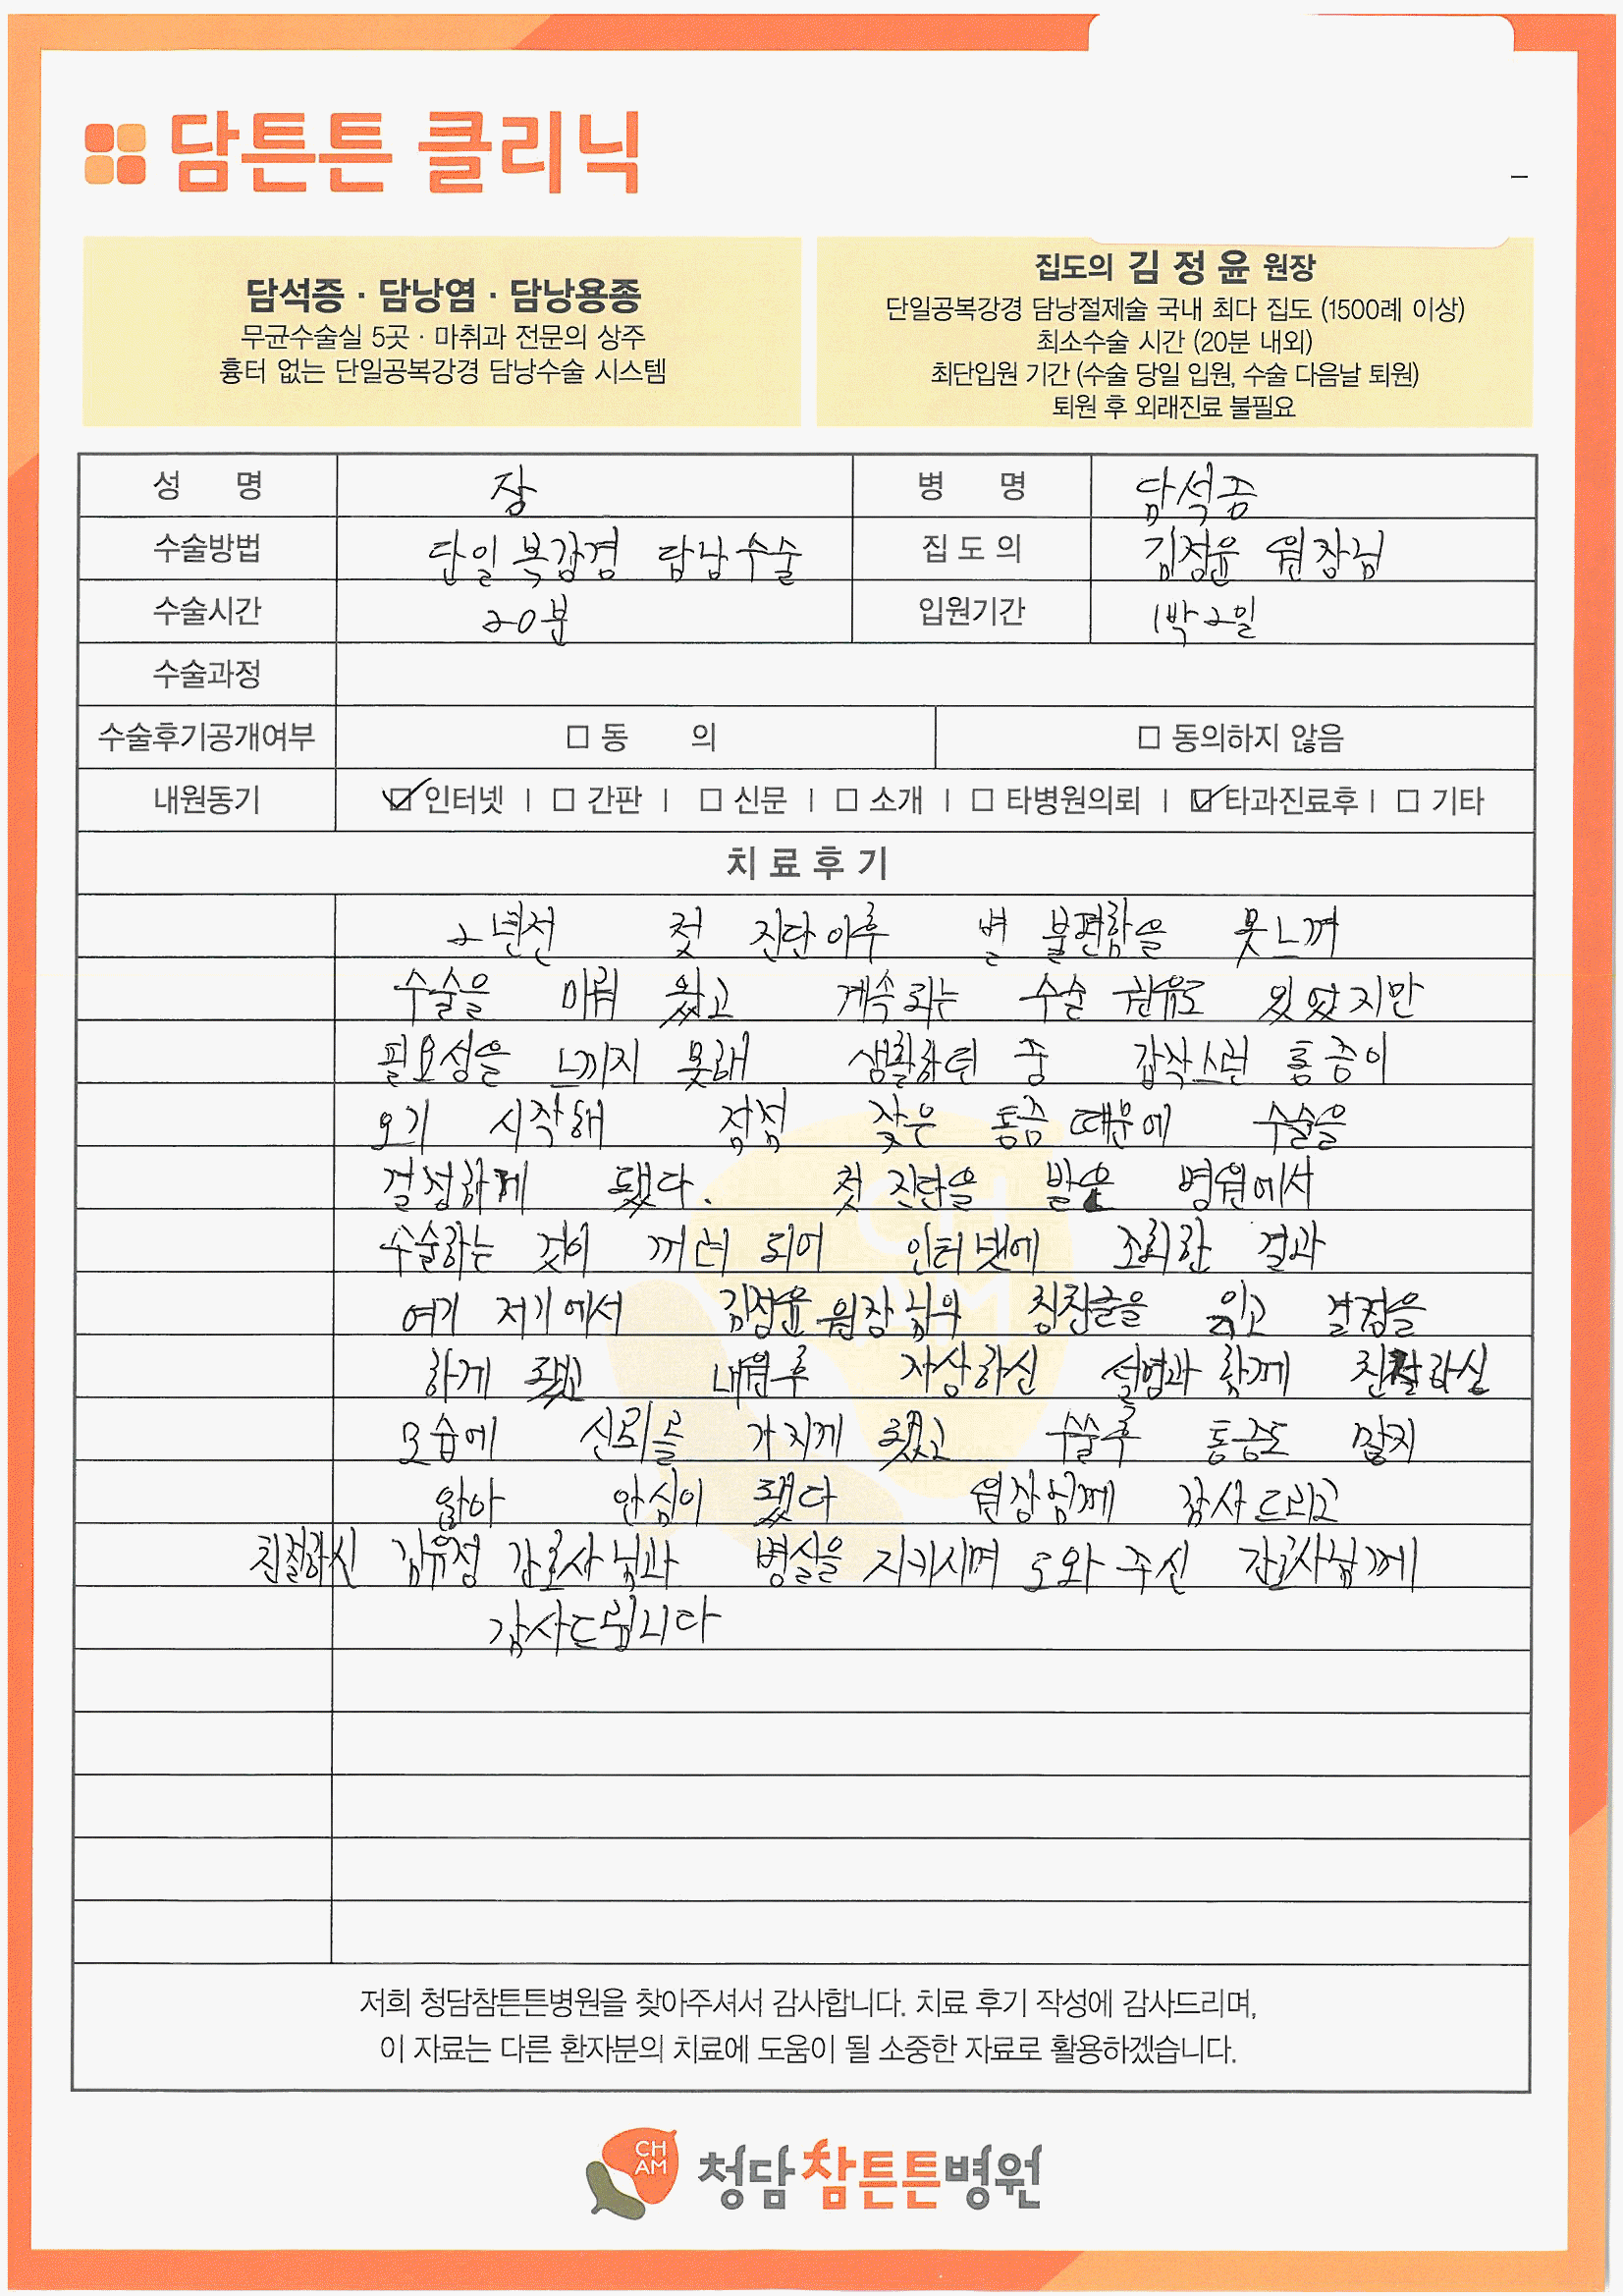 담튼튼 클리닉
담석증 · 담낭염 · 담낭용종
무균수술실 5곳 · 마취과 전문의 상주
흉터 없는 단일공복강경 담낭수술 시스템
집도의 김정윤 원장
단일공복강경 담낭절제술 국내 최다 집도 (1500례 이상)
최소수술 시간 (20분 내외)
최단입원 기간 (수술 당일 입원, 수술 다음날 퇴원)
퇴원 후 외래진료 불필요
성 명 장 병 명 담석증
수술방법 단일복강경 담낭수술 집도의 김정윤 원장님
수술시간 20분 입원기간 1박2일
수술과정
수술후기공개여부 □ 동 의 □ 동의하지 않음
내원동기 ☑ 인터넷 | □ 간판 | □ 신문 | □ 소개 | □ 타병원의뢰 | ☑ 타과진료후 | □ 기타
치료후기
2년전 첫 진단이후 별 불편함을 못느껴
수술을 미뤄 왔고 계속되는 수술 권유도 있었지만
필요성을 느끼지 못해 생활하던 중 갑작스런 통증이
오기 시작해 점점 잦은 통증 때문에 수술을
결정하게 됐다. 첫 진단을 받은 병원에서
수술하는 것이 꺼려 되어 인터넷에 조회한 결과
여기 저기에서 김정윤 원장님의 칭찬글을 읽고 결정을
하게 됐고 내원후 자상하신 설명과 함께 친절하신
모습에 신뢰를 가지게 됐고 수술후 통증도 많지
않아 안심이 됐다 원장님께 감사드리고
친절하신 김유정 간호사님과 병실을 지키시며 도와 주신 간호사님께
감사드립니다
저희 청담참튼튼병원을 찾아주셔서 감사합니다. 치료 후기 작성에 감사드리며,
이 자료는 다른 환자분의 치료에 도움이 될 소중한 자료로 활용하겠습니다.
CH
AM
청담참튼튼병원